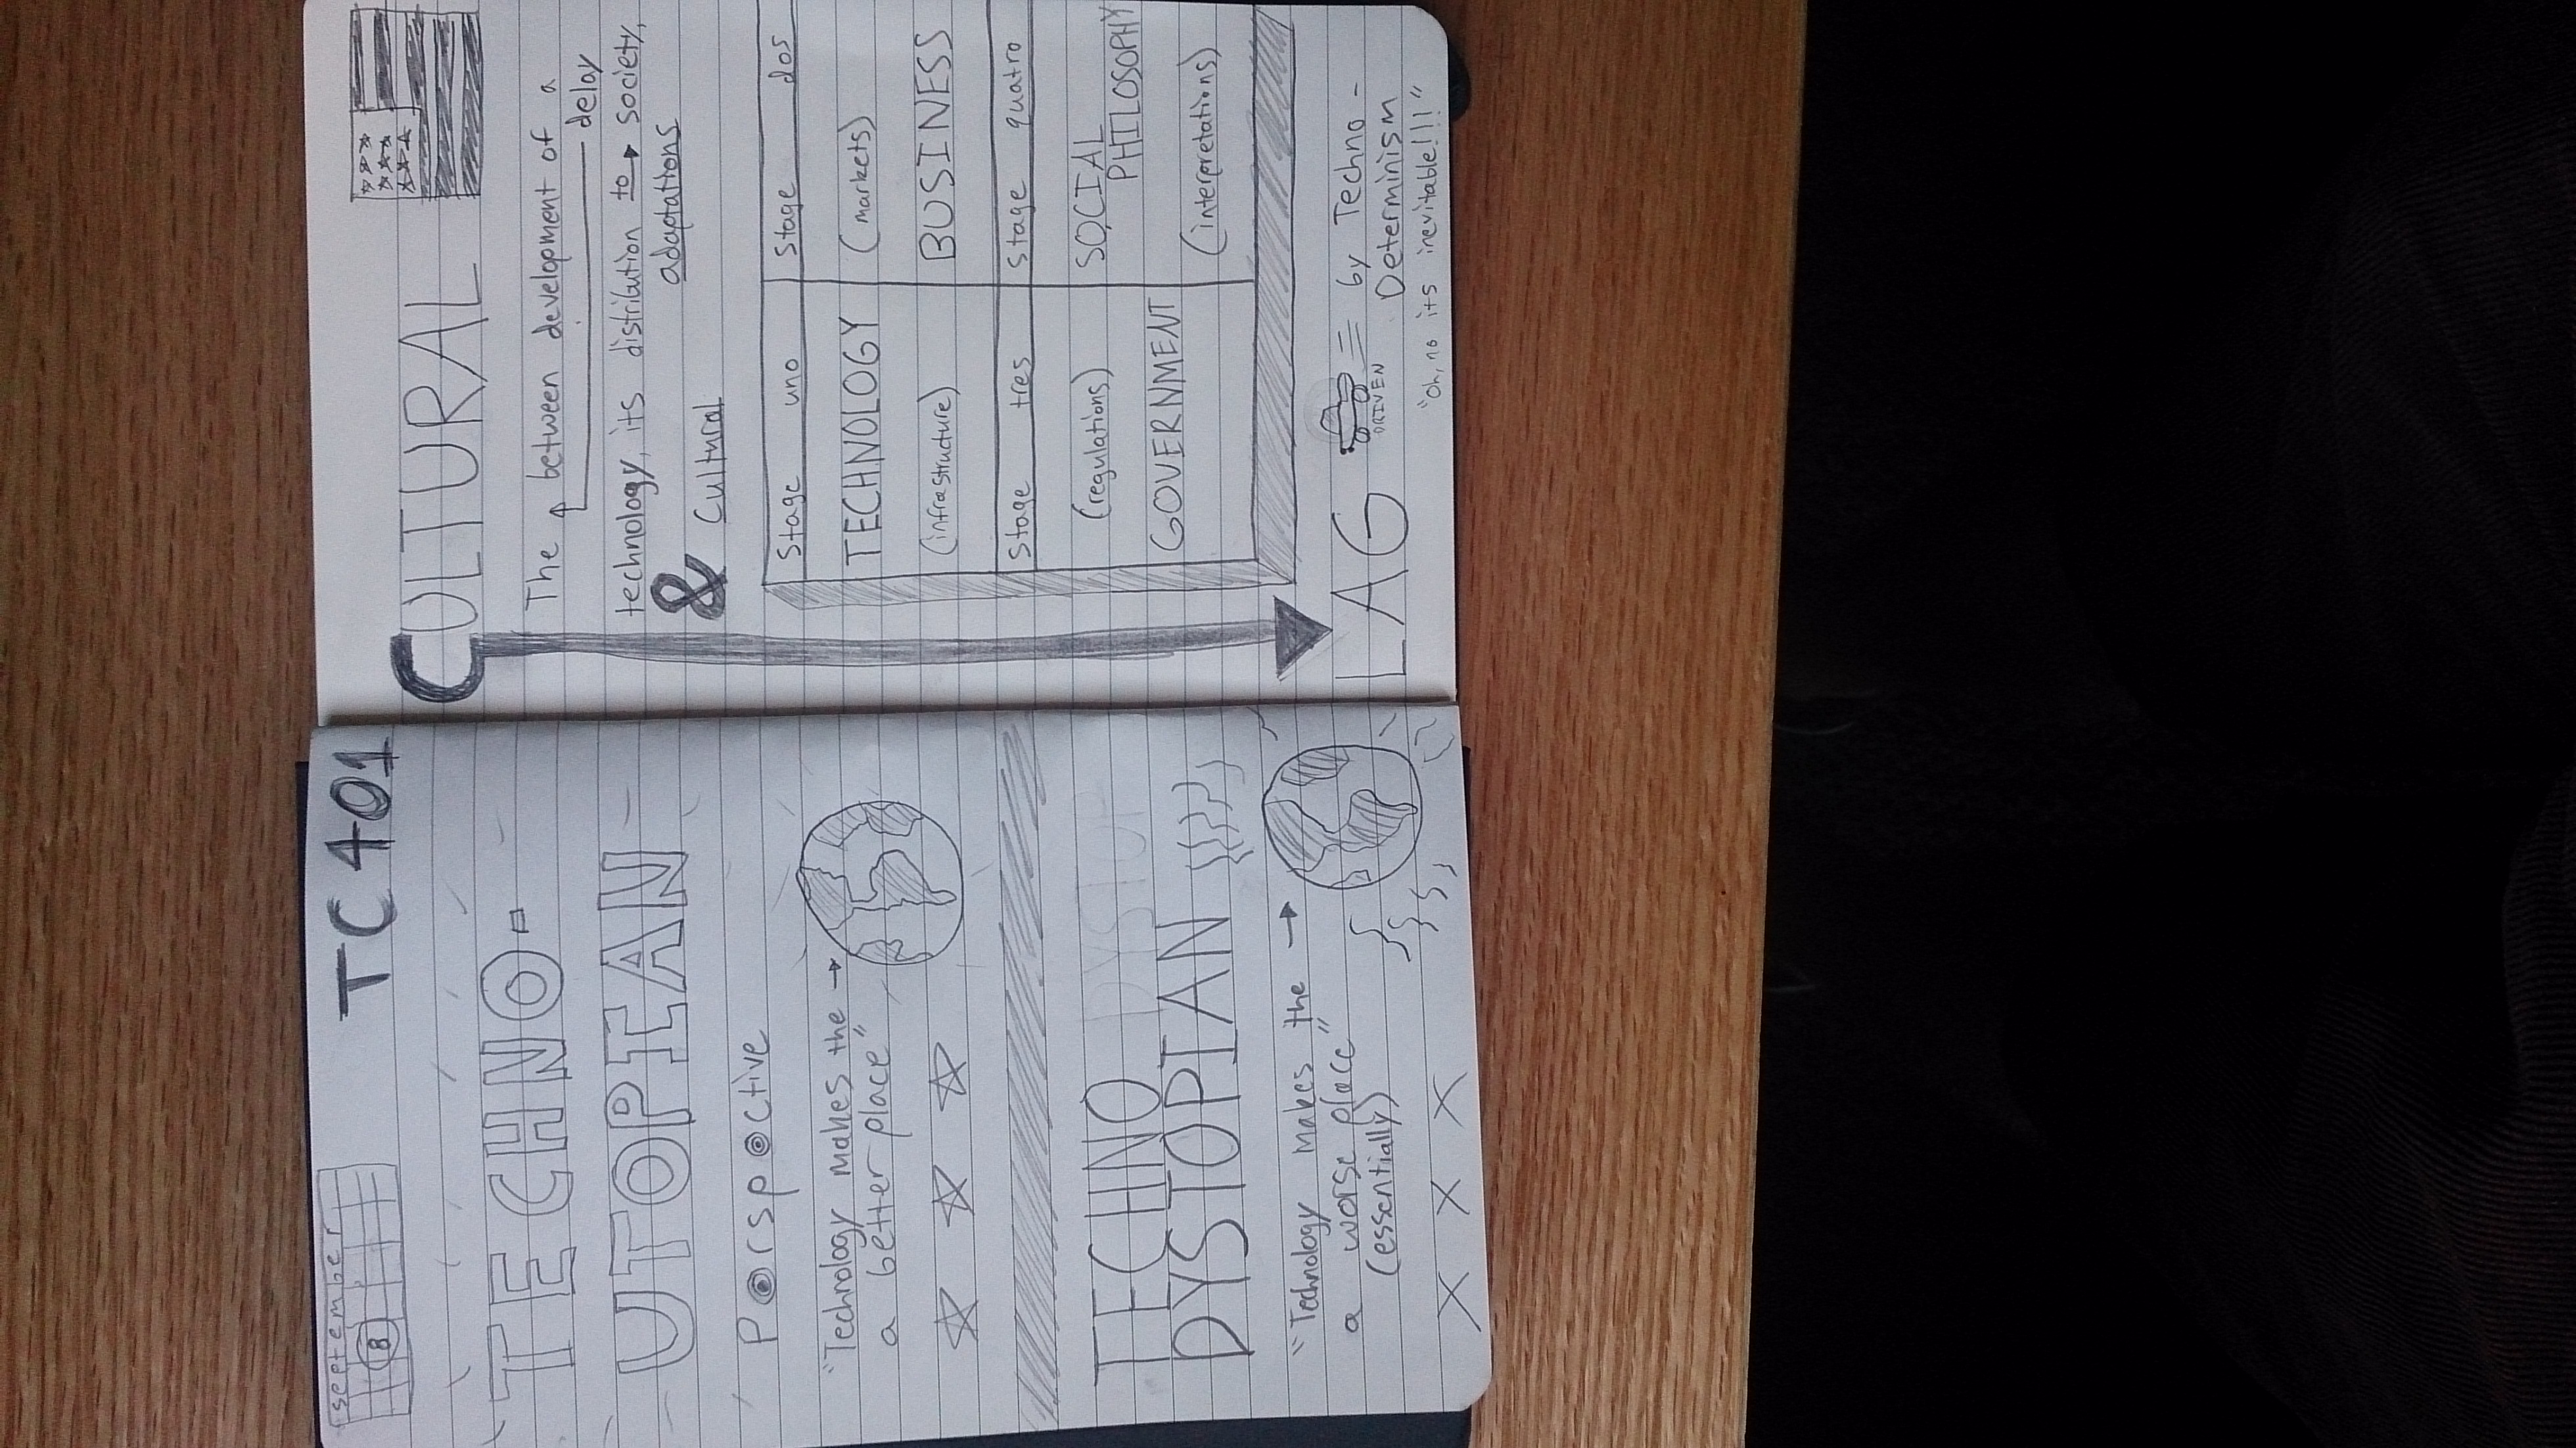 september
8
TC 401
TECHNO-
UTOPIAN
Perspective
"Technology makes the →
a better place"
TECHNO DYSTOP
DYSTOPIAN
"Technology makes the →
a worse place"
(essentially)
X X X
CULTURAL
The between development of a
delay
technology, its distribution to society,
& adaptations
Cultural
Stage uno Stage dos
TECHNOLOGY (markets)
(infrastructure) BUSINESS
Stage tres Stage quatro
(regulations) SOCIAL
PHILOSOPHY
GOVERNMENT (interpretations)
LAG DRIVEN by Techno-
Determinism
"Oh, no its inevitable!!!"